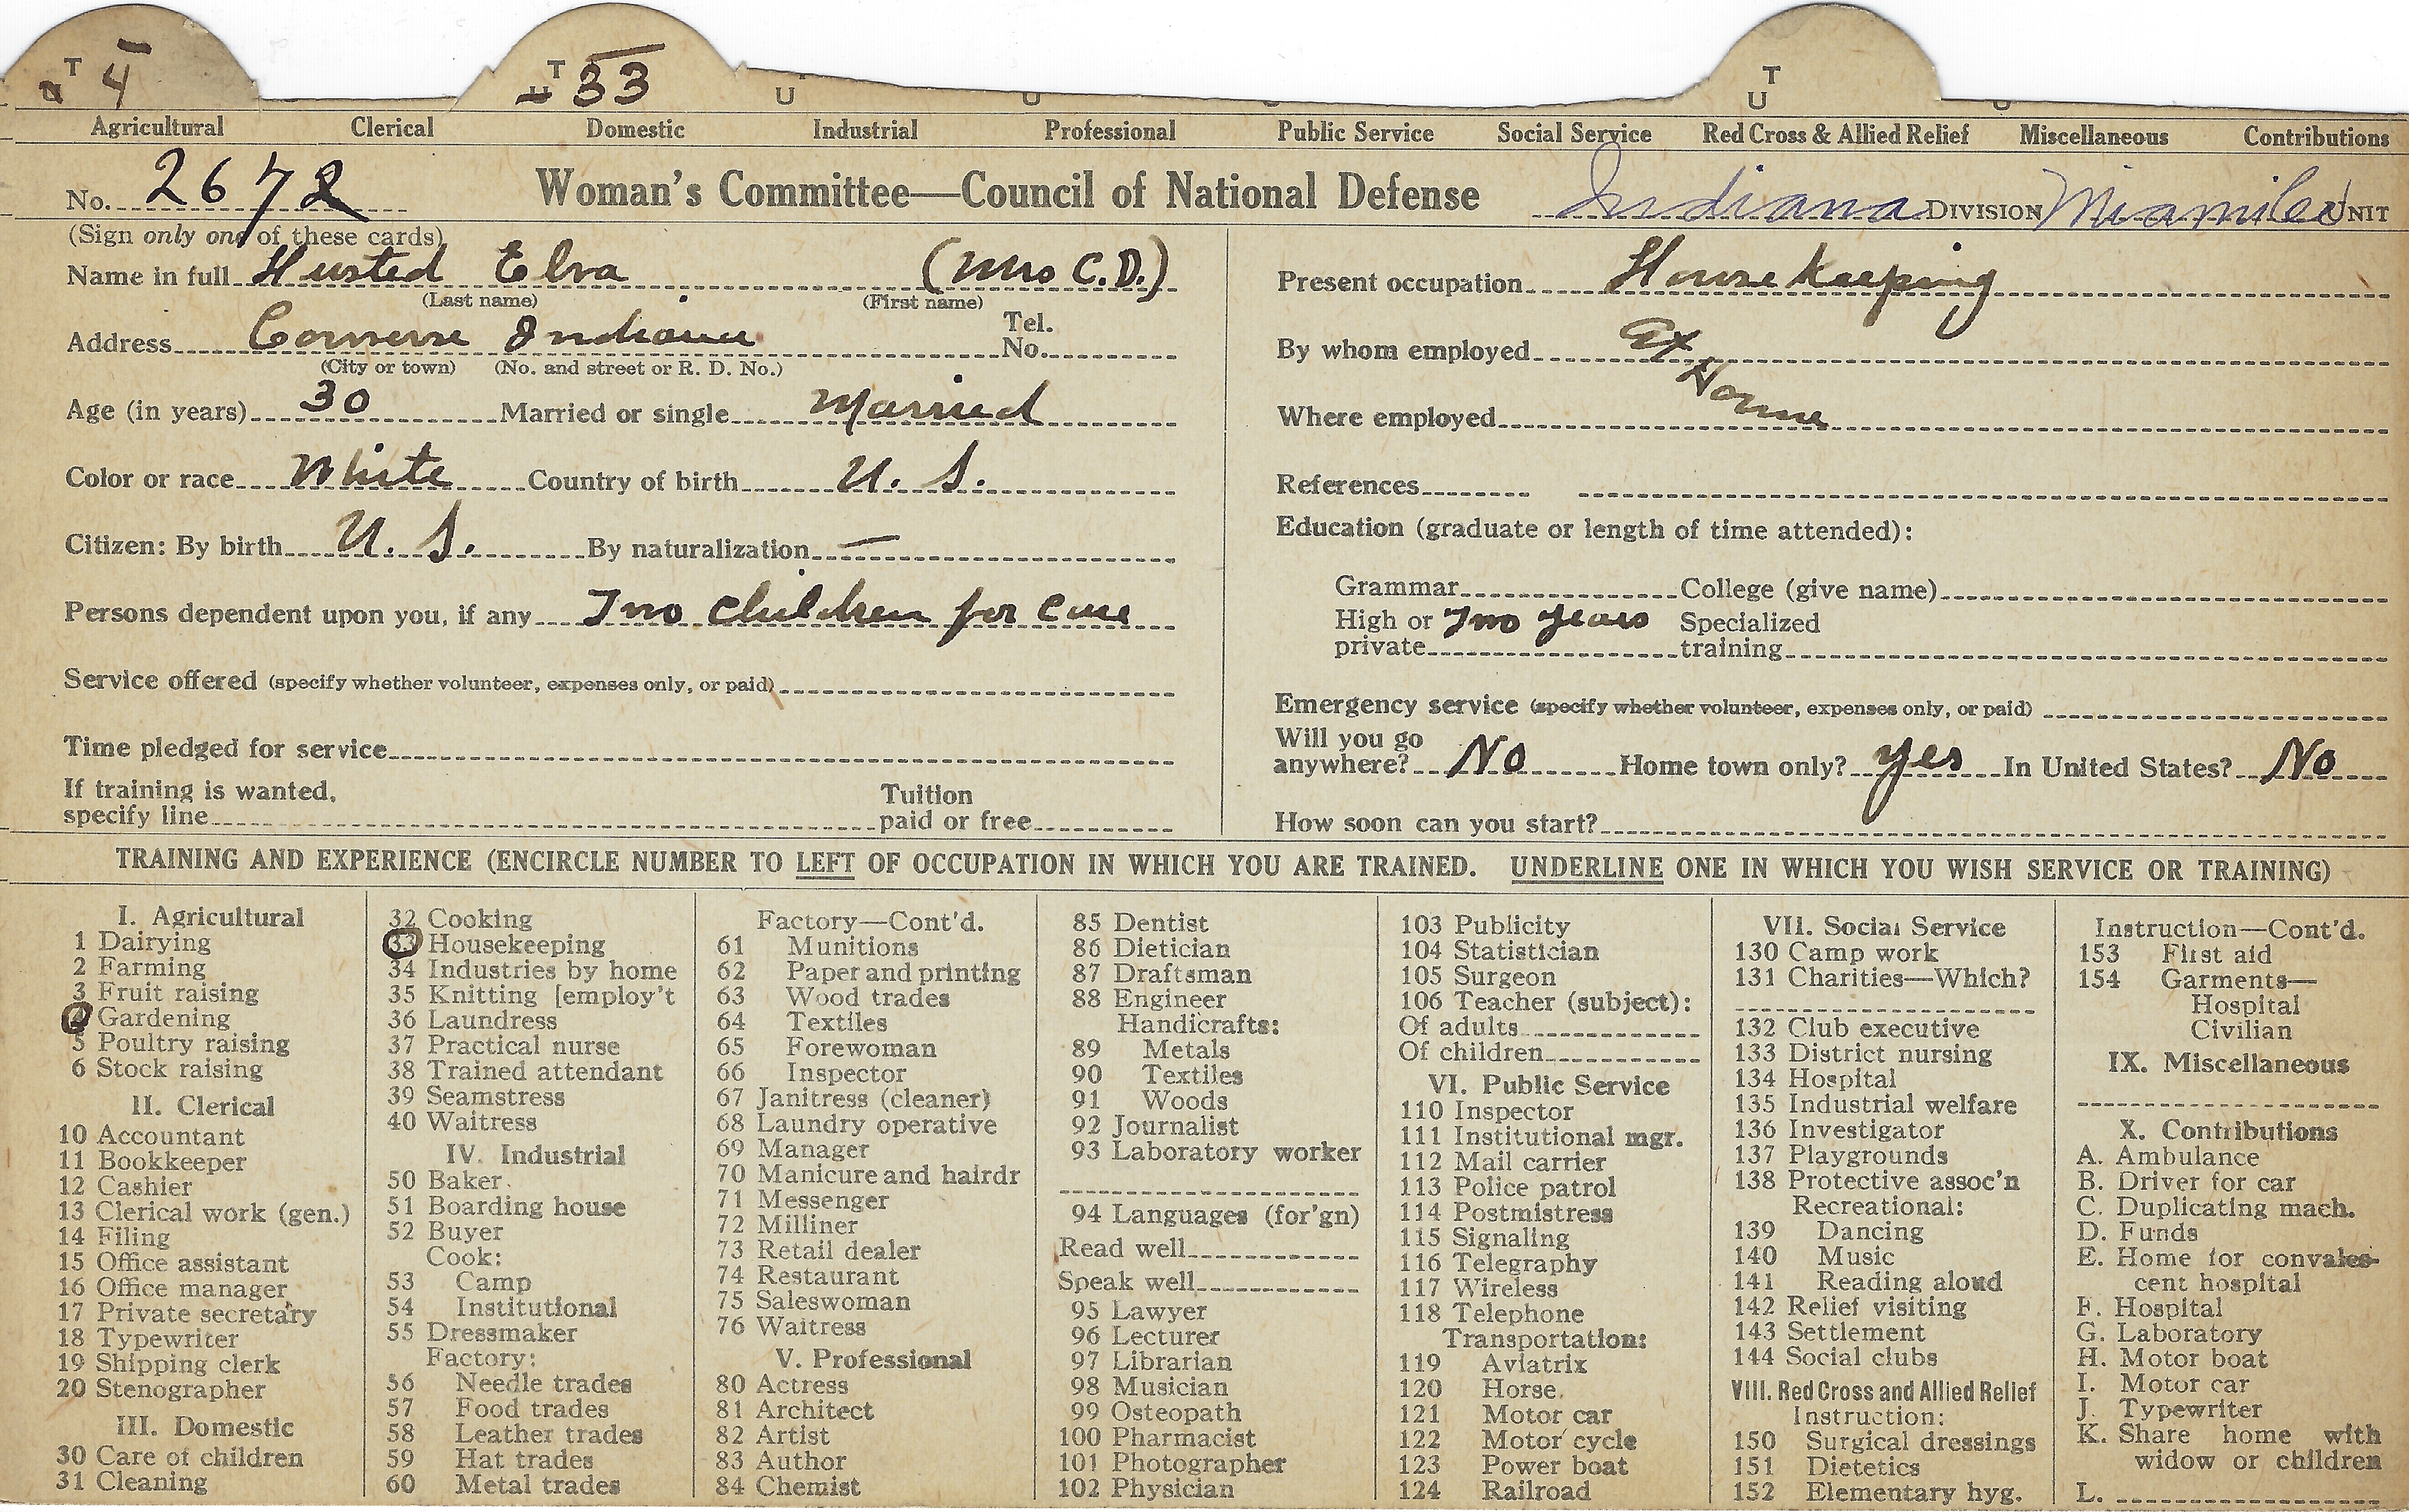 T 4 T 33 T
U U U U U
Agricultural Clerical Domestic Industrial Professional Public Service Social Service Red Cross & Allied Relief Miscellaneous Contributions
No. 2672 Woman's Committee—Council of National Defense Indiana DIVISION Miami Co UNIT
(Sign only one of these cards)
Name in full Husted Elva (Mrs C.D.)
(Last name) (First name)
Address Converse Indiana Tel. No.
(City or town) (No. and street or R. D. No.)
Age (in years) 30 Married or single Married
Color or race White Country of birth U. S.
Citizen: By birth U. S. By naturalization —
Persons dependent upon you, if any Two children for care
Service offered (specify whether volunteer, expenses only, or paid)
Time pledged for service
If training is wanted, specify line Tuition paid or free
Present occupation House keeping
By whom employed At
Where employed Home
References
Education (graduate or length of time attended):
Grammar College (give name)
High or private Two years Specialized training
Emergency service (specify whether volunteer, expenses only, or paid)
Will you go anywhere? No Home town only? yes In United States? No
How soon can you start?
TRAINING AND EXPERIENCE (ENCIRCLE NUMBER TO LEFT OF OCCUPATION IN WHICH YOU ARE TRAINED. UNDERLINE ONE IN WHICH YOU WISH SERVICE OR TRAINING)
I. Agricultural
1 Dairying
2 Farming
3 Fruit raising
4 Gardening
5 Poultry raising
6 Stock raising
II. Clerical
10 Accountant
11 Bookkeeper
12 Cashier
13 Clerical work (gen.)
14 Filing
15 Office assistant
16 Office manager
17 Private secretary
18 Typewriter
19 Shipping clerk
20 Stenographer
III. Domestic
30 Care of children
31 Cleaning
32 Cooking
33 Housekeeping
34 Industries by home
35 Knitting [employ't
36 Laundress
37 Practical nurse
38 Trained attendant
39 Seamstress
40 Waitress
IV. Industrial
50 Baker
51 Boarding house
52 Buyer
Cook:
53 Camp
54 Institutional
55 Dressmaker
Factory:
56 Needle trades
57 Food trades
58 Leather trades
59 Hat trades
60 Metal trades
Factory—Cont'd.
61 Munitions
62 Paper and printing
63 Wood trades
64 Textiles
65 Forewoman
66 Inspector
67 Janitress (cleaner)
68 Laundry operative
69 Manager
70 Manicure and hairdr
71 Messenger
72 Milliner
73 Retail dealer
74 Restaurant
75 Saleswoman
76 Waitress
V. Professional
80 Actress
81 Architect
82 Artist
83 Author
84 Chemist
85 Dentist
86 Dietician
87 Draftsman
88 Engineer
Handicrafts:
89 Metals
90 Textiles
91 Woods
92 Journalist
93 Laboratory worker
94 Languages (for'gn)
Read well
Speak well
95 Lawyer
96 Lecturer
97 Librarian
98 Musician
99 Osteopath
100 Pharmacist
101 Photographer
102 Physician
103 Publicity
104 Statistician
105 Surgeon
106 Teacher (subject):
Of adults
Of children
VI. Public Service
110 Inspector
111 Institutional mgr.
112 Mail carrier
113 Police patrol
114 Postmistress
115 Signaling
116 Telegraphy
117 Wireless
118 Telephone
Transportation:
119 Aviatrix
120 Horse
121 Motor car
122 Motor cycle
123 Power boat
124 Railroad
VII. Social Service
130 Camp work
131 Charities—Which?
132 Club executive
133 District nursing
134 Hospital
135 Industrial welfare
136 Investigator
137 Playgrounds
138 Protective assoc'n
Recreational:
139 Dancing
140 Music
141 Reading aloud
142 Relief visiting
143 Settlement
144 Social clubs
VIII. Red Cross and Allied Relief
Instruction:
150 Surgical dressings
151 Dietetics
152 Elementary hyg.
Instruction—Cont'd.
153 First aid
154 Garments—
Hospital
Civilian
IX. Miscellaneous
X. Contributions
A. Ambulance
B. Driver for car
C. Duplicating mach.
D. Funds
E. Home for convales-
cent hospital
F. Hospital
G. Laboratory
H. Motor boat
I. Motor car
J. Typewriter
K. Share home with
widow or children
L.